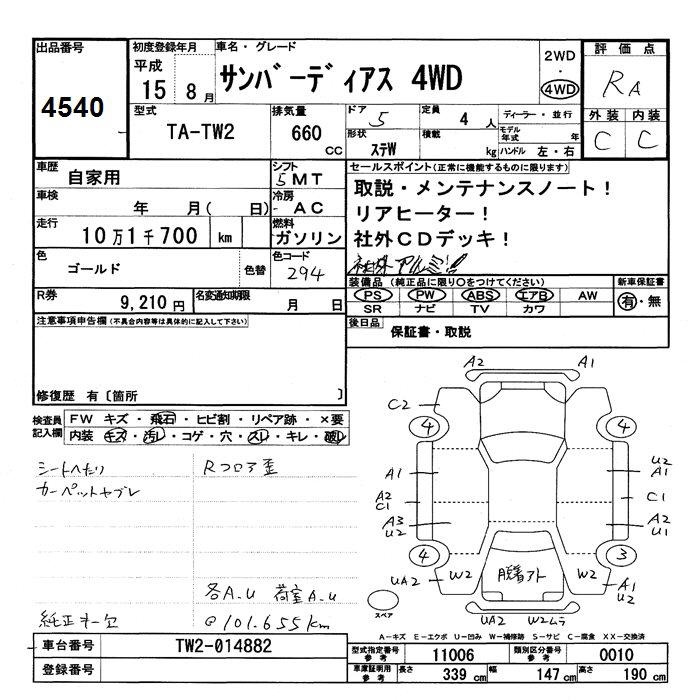 出品番号
4540
初度登録年月
平成
15 8月
車名・グレード
サンバーディアス 4WD
2WD
・
4WD
評価点
RA
外装 内装
C C
型式
TA-TW2
排気量
660 CC
ドア 5
形状 ステW
定員 4 人
積載 kg
ディーラー・並行
モデル年式 年
ハンドル 左・右
車歴
自家用
シフト
5MT
車検
年 月( 日)
冷房
AC
走行
10万1千700 km
燃料
ガソリン
色
ゴールド
色替
色コード
294
R券
9,210円
名変通知期限
月 日
セールスポイント(正常に機能するものに限ります)
取説・メンテナンスノート!
リアヒーター!
社外CDデッキ!
社外アルミ!!
装備品 (純正品に限り○をつけてください)
PS PW ABS エアB AW
SR ナビ TV カワ
新車保証書
有・無
後日品
保証書・取説
注意事項申告欄(不具合内容等は具体的に記入して下さい)
修復歴 有〔箇所 〕
検査員記入欄
FW キズ・飛石・ヒビ割・リペア跡・×要
内装 キズ・汚レ・コゲ・穴・スレ・キレ・破レ
シートへたり
カーペットヤブレ
Rフロア歪
各A.U 荷室A.U
純正オー欠
@101.655km
A2 A1
C2
4 4
A1
U2
A1
A2
C1
C1
A3
U2
A2
U1
4 3
UA2 W2 脱着アト W2 A1
U2
スペア
UA2 W2ムラ
A-キズ E-エクボ U-凹み W-補修跡 S-サビ C-腐食 XX-交換済
車台番号
TW2-014882
登録番号
型式指定番号 参考
11006
類別区分番号 参考
0010
車庫証明用 参考
長さ 339 cm
幅 147 cm
高さ 190 cm